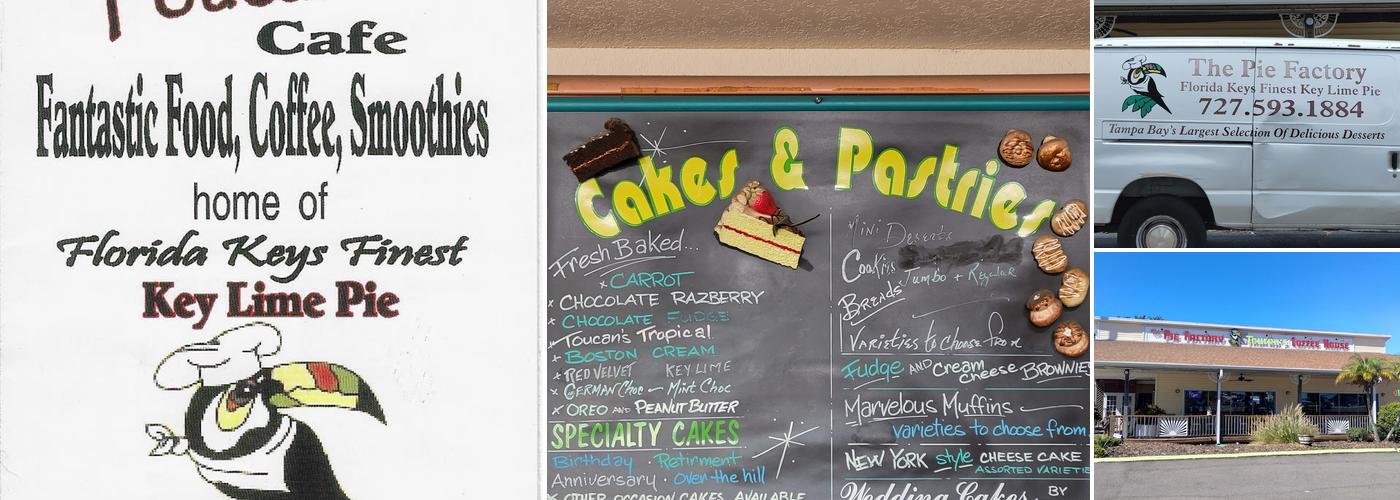 Cafe
Fantastic Food, Coffee, Smoothies
home of
Florida Keys Finest
Key Lime Pie
Cakes & Pastries
Fresh Baked...
x CARROT
x CHOCOLATE RAZBERRY
x CHOCOLATE FUDGE
x Toucans Tropical
x BOSTON CREAM
x RED VELVET KEY LIME
x GERMAN Choc — Mint Choc
x OREO AND PEANUT BUTTER
SPECIALTY CAKES
Birthday · Retirment
Anniversary · Over the hill
x OTHER OCCASION CAKES AVAILABLE
Mini Deserts
Cookies Jumbo + Regular
Breads
Varietiss to choose from
Fudge AND Cream cheese BROWNIES
Marvelous Muffins
varieties to choose from
NEW YORK style CHEESE CAKE
ASSORTED VARIETIE
Wedding Cakes BY
The Pie Factory
Florida Keys Finest Key Lime Pie
727.593.1884
Tampa Bay's Largest Selection Of Delicious Desserts
PIE FACTORY TOUCANS COFFEE HOUSE